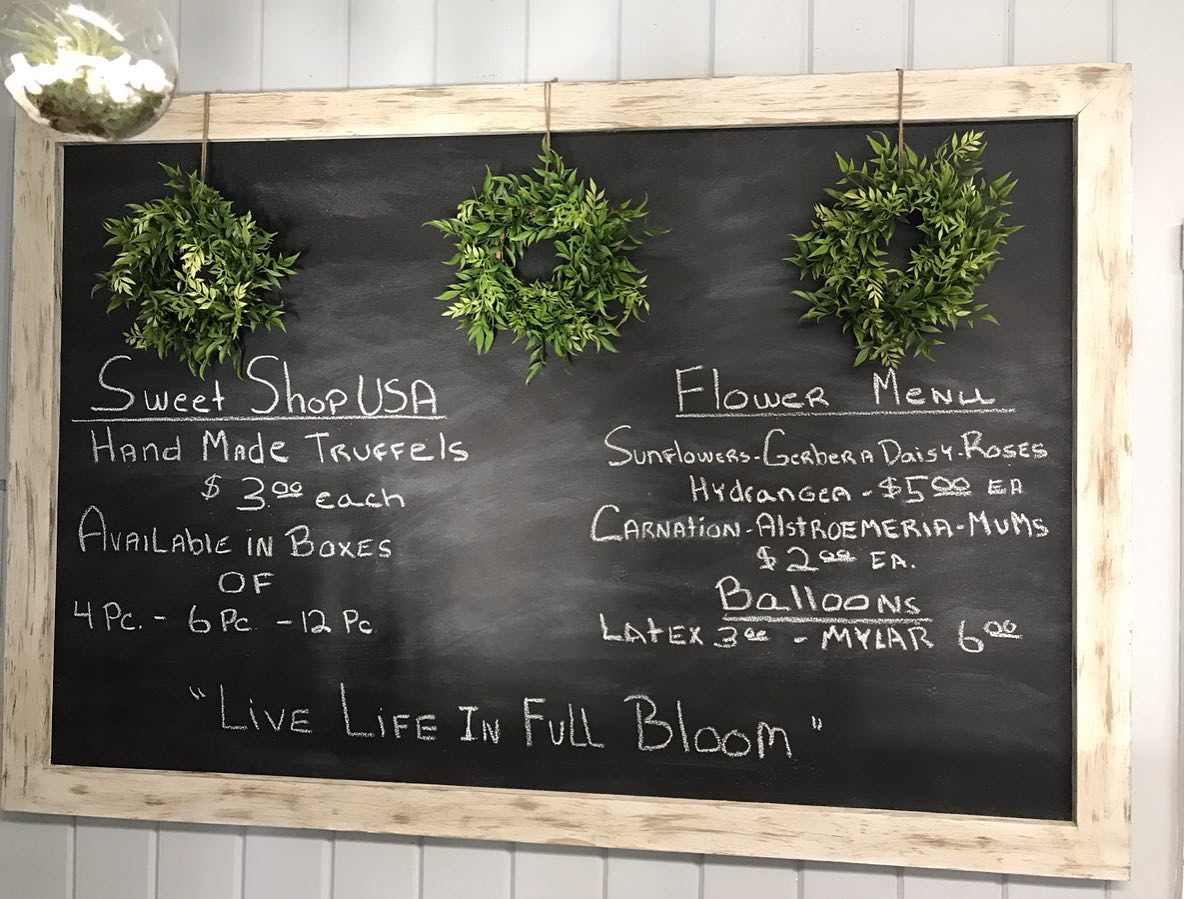 Sweet Shop USA
Hand Made Truffels
$3.00 each
Available in Boxes
OF
4 Pc. - 6 Pc - 12 Pc
Flower Menu
Sunflowers - Gerbera Daisy - Roses
Hydrangea - $5.00 EA
Carnation - Alstroemeria - Mums
$2.00 EA.
Balloons
Latex 3.00 - Mylar 6.00
"Live Life In Full Bloom"